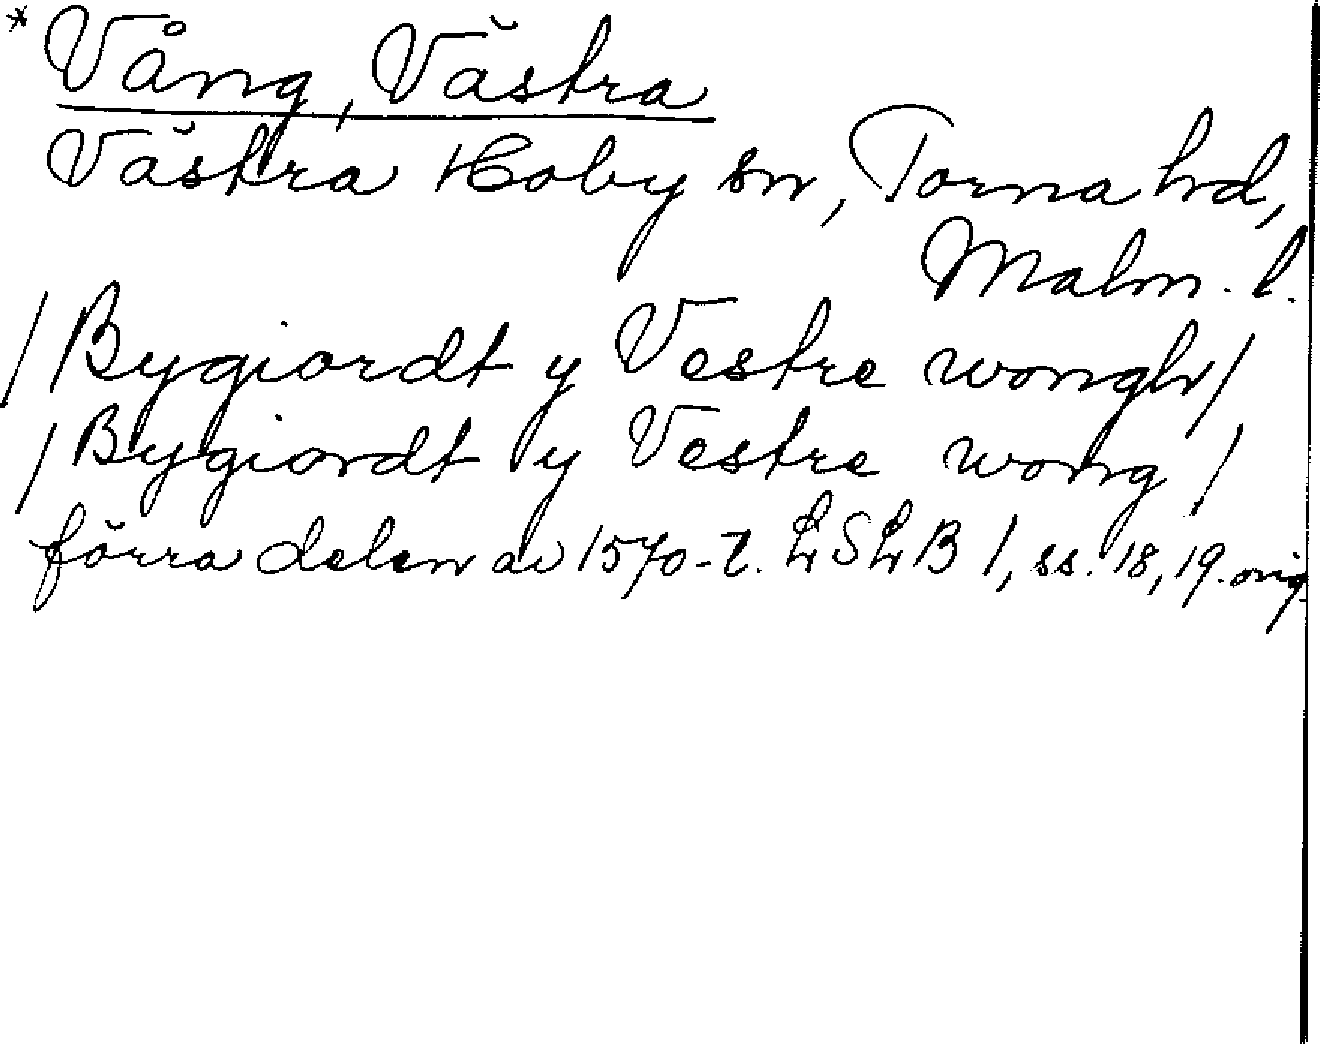 * Vång, Västra
Västra Hoby sn, Torna hd,
Malm. l.
/Bygiordt y Vestre wongh/
/Bygiordt y Vestre wong/
förra delen av 1570-t. LSLB 1, ss. 18, 19. orig.